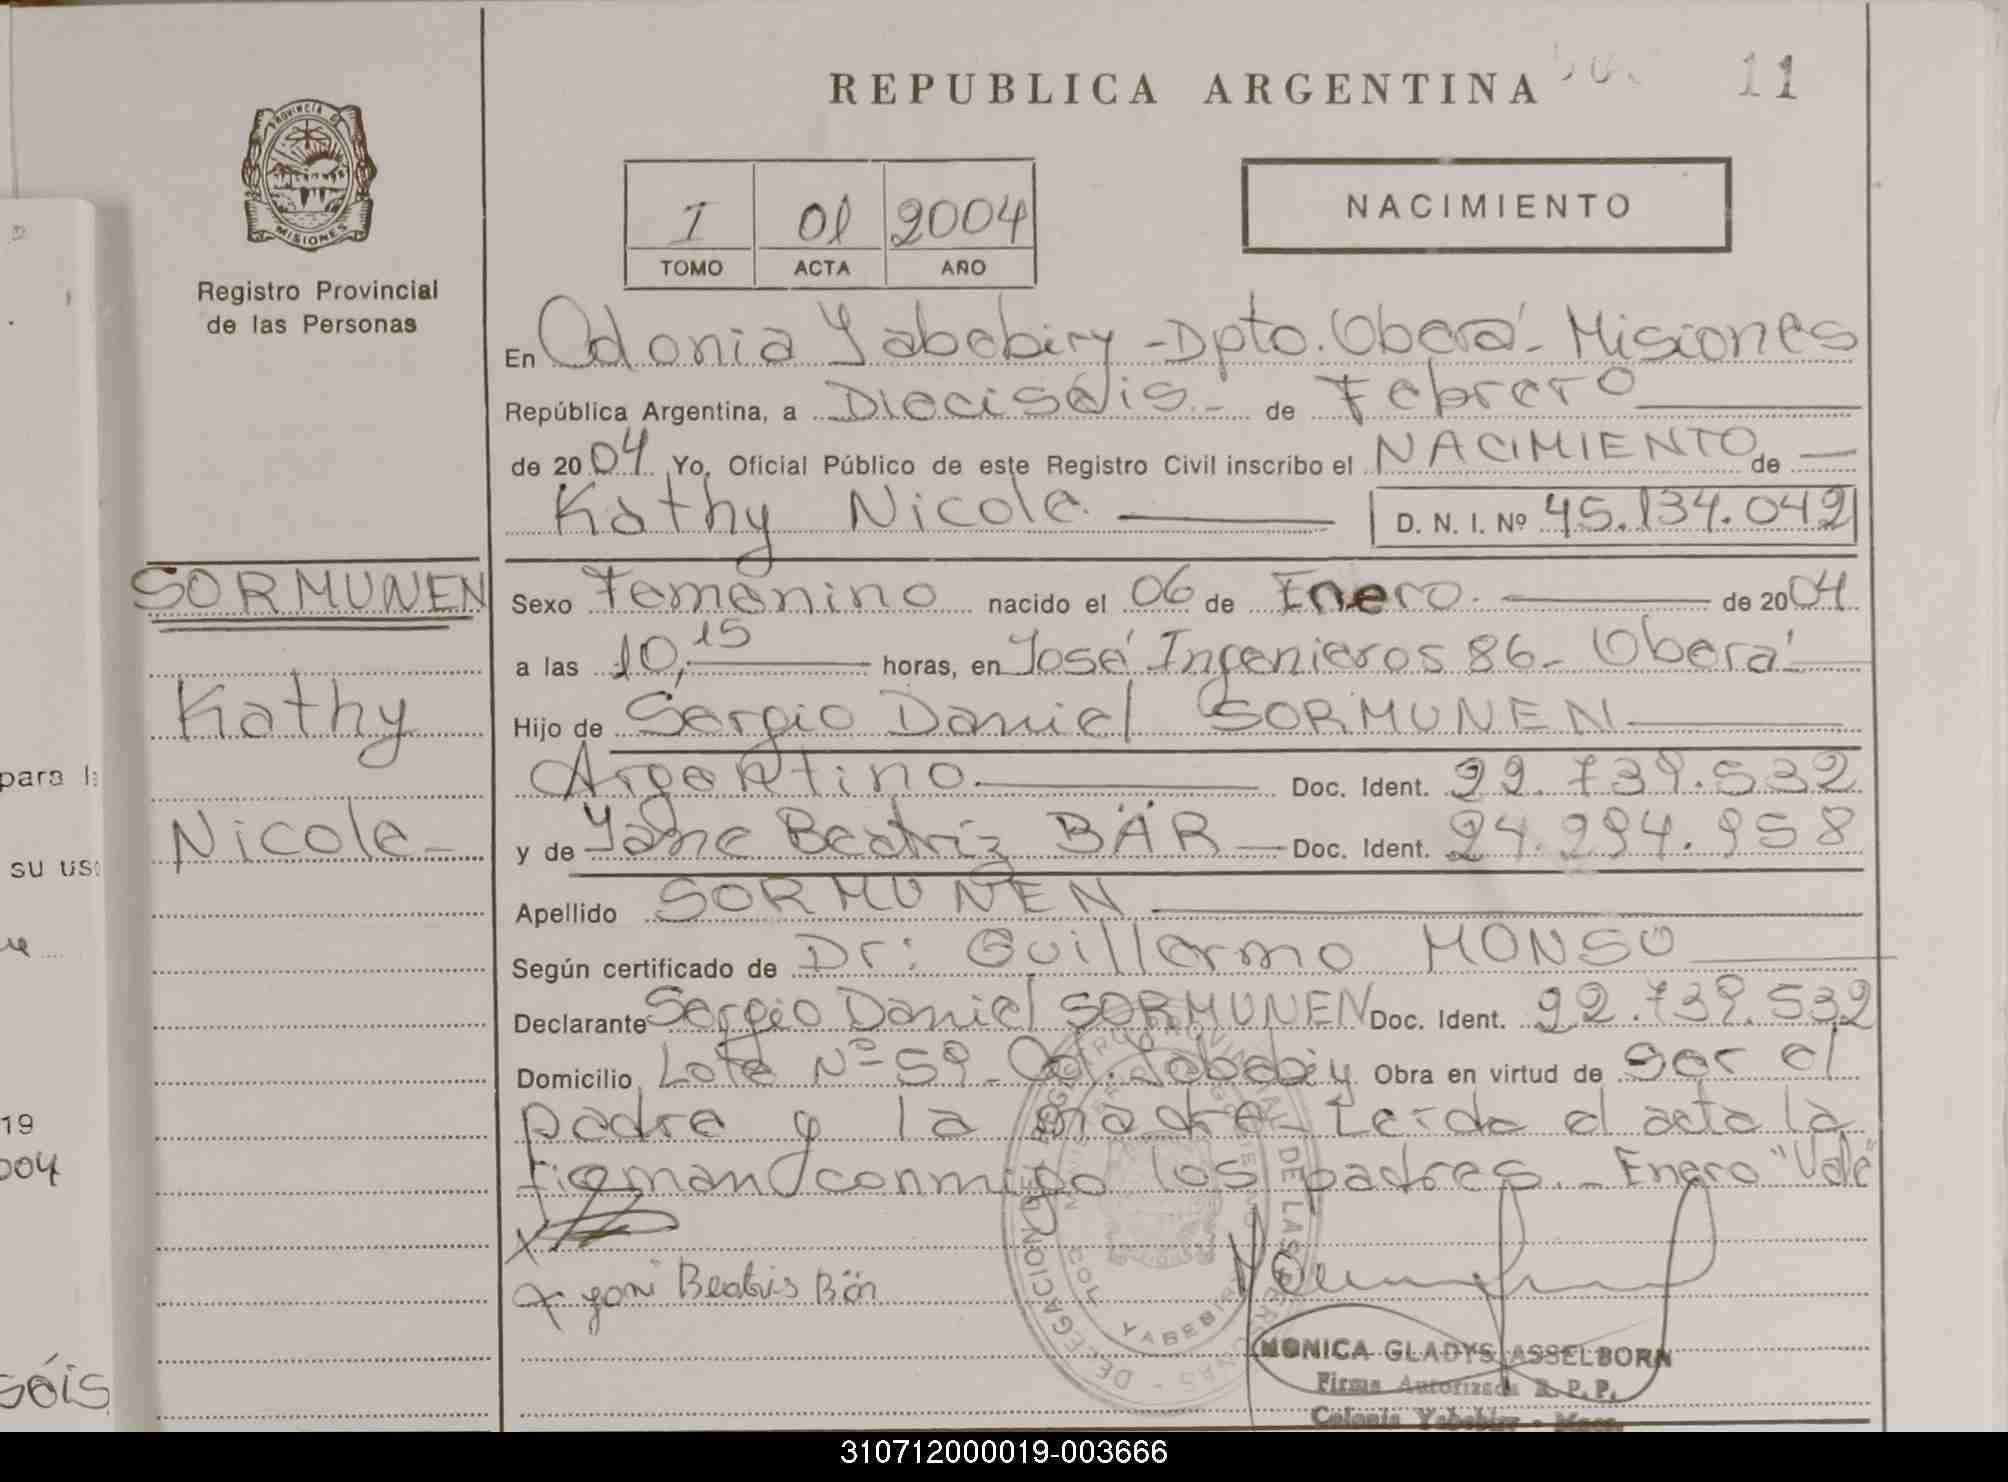 REPUBLICA ARGENTINA
11
PROVINCIA DE
MISIONES
Registro Provincial
de las Personas
I 01 2004
TOMO ACTA AÑO
NACIMIENTO
En Colonia Yabebiry - Dpto. Oberá - Misiones
República Argentina, a Dieciséis.- de Febrero
de 2004 Yo, Oficial Público de este Registro Civil inscribo el NACIMIENTO de
Kathy Nicole D. N. I. Nº 45.134.042
SORMUNEN
Kathy
Nicole
Sexo Femenino nacido el 06 de Enero. de 2004
a las 10,15 horas, en José Ingenieros 86 - Oberá
Hijo de Sergio Daniel SORMUNEN
Argentino Doc. Ident. 22.739.532
y de Yane Beatriz BÄR Doc. Ident. 24.294.958
Apellido SORMUNEN
Según certificado de Dr: Guillermo MONSO
Declarante Sergio Daniel SORMUNEN Doc. Ident. 22.739.532
Domicilio Lote Nº 59 - Col. Yabebiy Obra en virtud de ser el
padre y la madre - Leída el acta la
firman conmigo los padres.- Enero "Vale"
Beatris Bär
YABEBIRY
MONICA GLADYS ASSELBORN
Firma Autorizada R. P. P.
Colonia Yabebiry - Mnes.
para la
su uso
19
004
séis
310712000019-003666